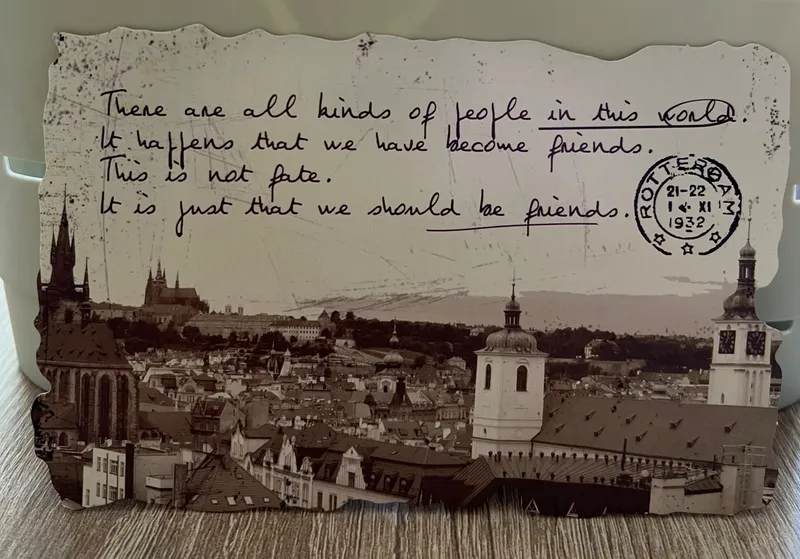 There are all kinds of people in this world.
It happens that we have become friends.
This is not fate.
It is just that we should be friends.
ROTTERDAM
21-22
1 XI
1932